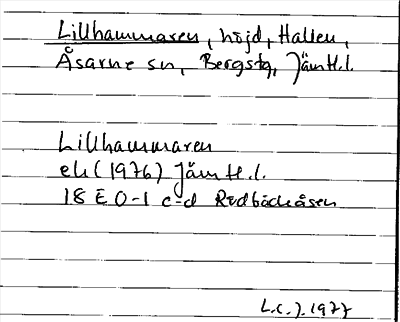 Lillhammaren, höjd, Hallen,
Åsarne sn, Bergstg, Jämtl.l.
Lillhammaren
ek (1976) Jämtl.l.
18 E 0-1 c-d Rödbäcksåsen
L.C.J. 1977